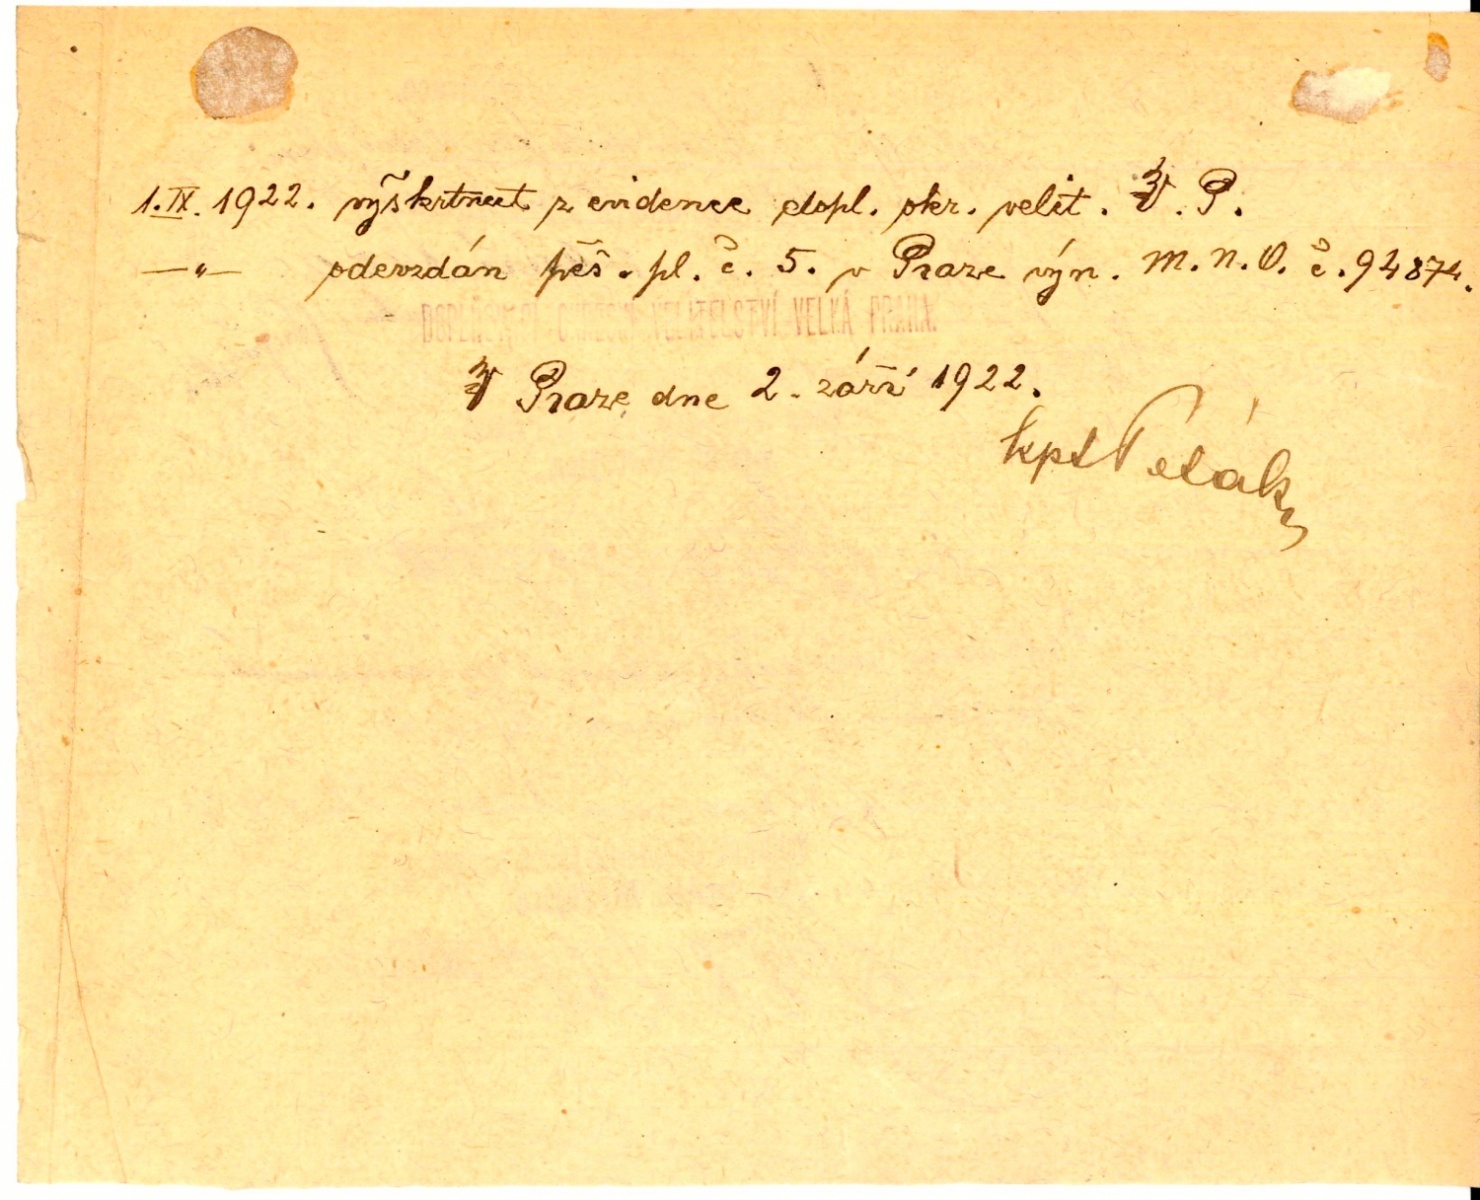 1.IX. 1922. výškrtnut z evidence dopl. okr. velit. V. P.
—"— odevzdán pěš. pl. č. 5. v Praze výn. M.N.O. č. 94874.
DOPLŇOVACÍ OKRESNÍ VELITELSTVÍ VELKÁ PRAHA.
V Praze dne 2. září 1922.
kpt